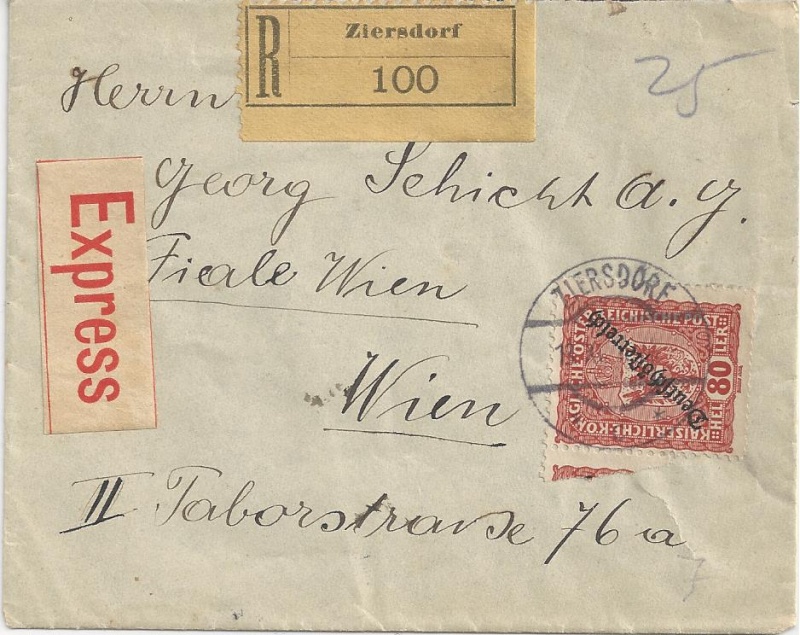 R
Ziersdorf
100
25
Herrn
Georg Schicht A. G.
Express
Ficale Wien
ZIERSDORF
KAISERLICHE KÖNIGLICHE ÖSTERREICHISCHE POST
HELLER
80
Deutschösterreich
Wien
II Taborstrasse 76a
7